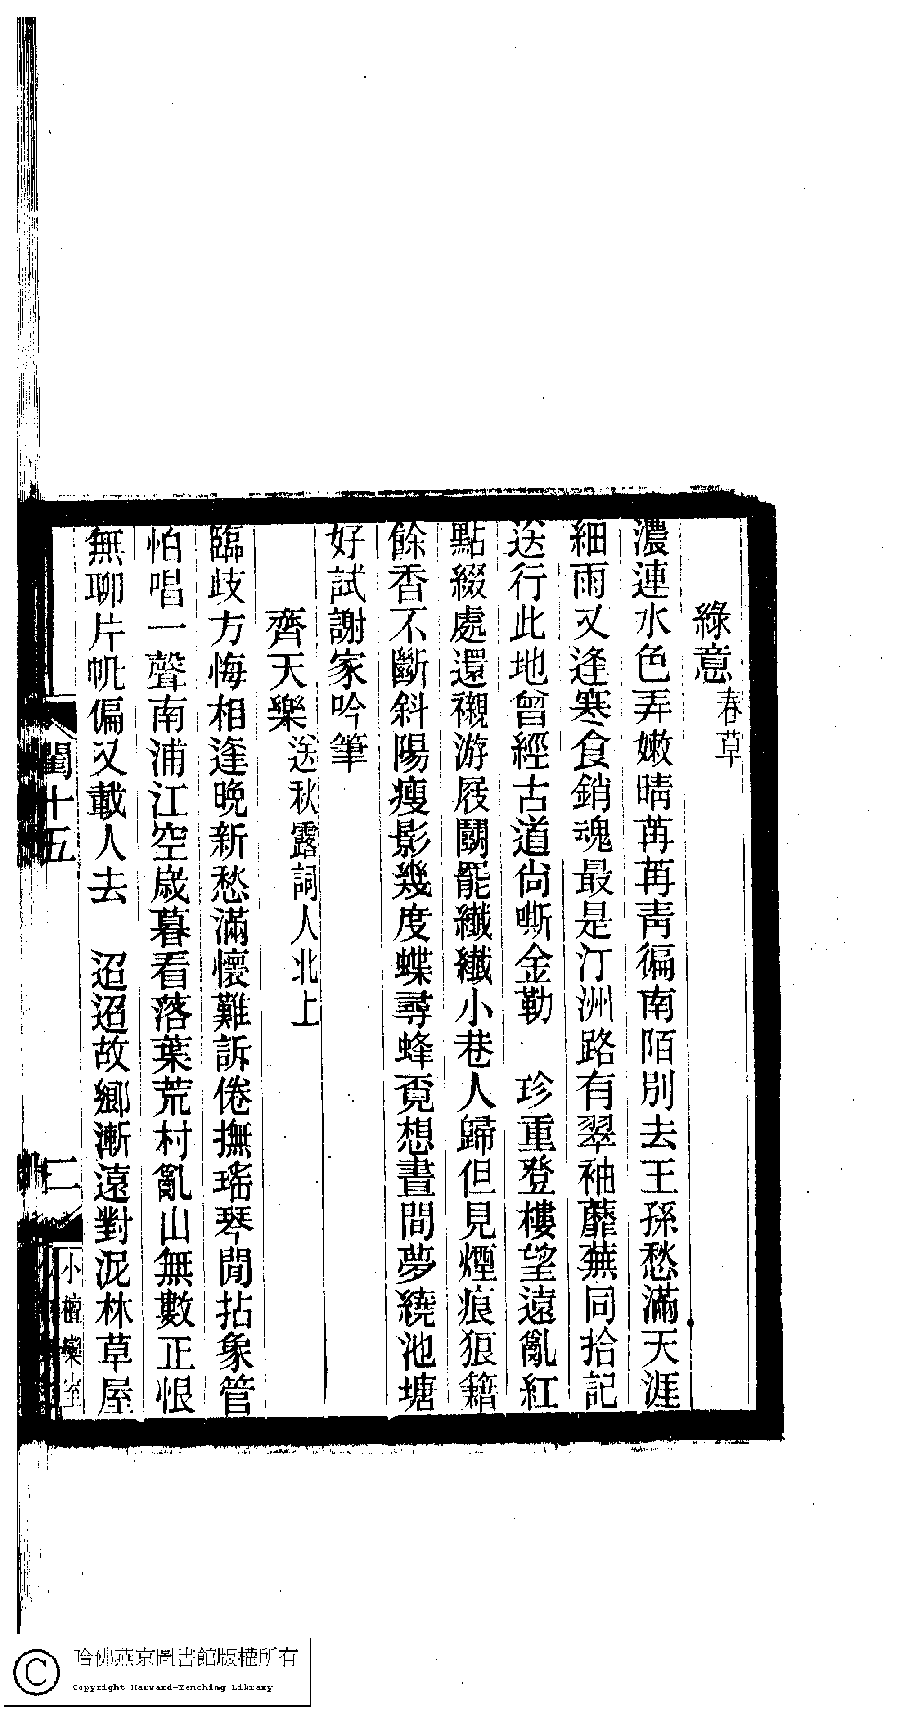 綠意春草
濃連水色弄嫩晴苒苒青徧南陌別去王孫愁滿天涯
細雨又逢寒食銷魂最是汀洲路有翠袖蘼蕪同拾記
送行此地曾經古道尙嘶金勒　珍重登樓望遠亂紅
點綴處還襯游屐鬭罷纖纖小巷人歸但見煙痕狼籍
餘香不斷斜陽瘦影幾度蝶尋蜂覓想晝閒夢繞池塘
好試謝家吟筆
齊天樂送秋露詞人北上
臨歧方悔相逢晚新愁滿懷難訴倦撫瑤琴閒拈象管
怕唱一聲南浦江空歲暮看落葉荒村亂山無數正恨
無聊片帆偏又載人去　迢迢故鄉漸遠對泥林草屋
閨十五
二
小檀欒室
哈佛燕京圖書館版權所有
Copyright Harvard-Yenching Library